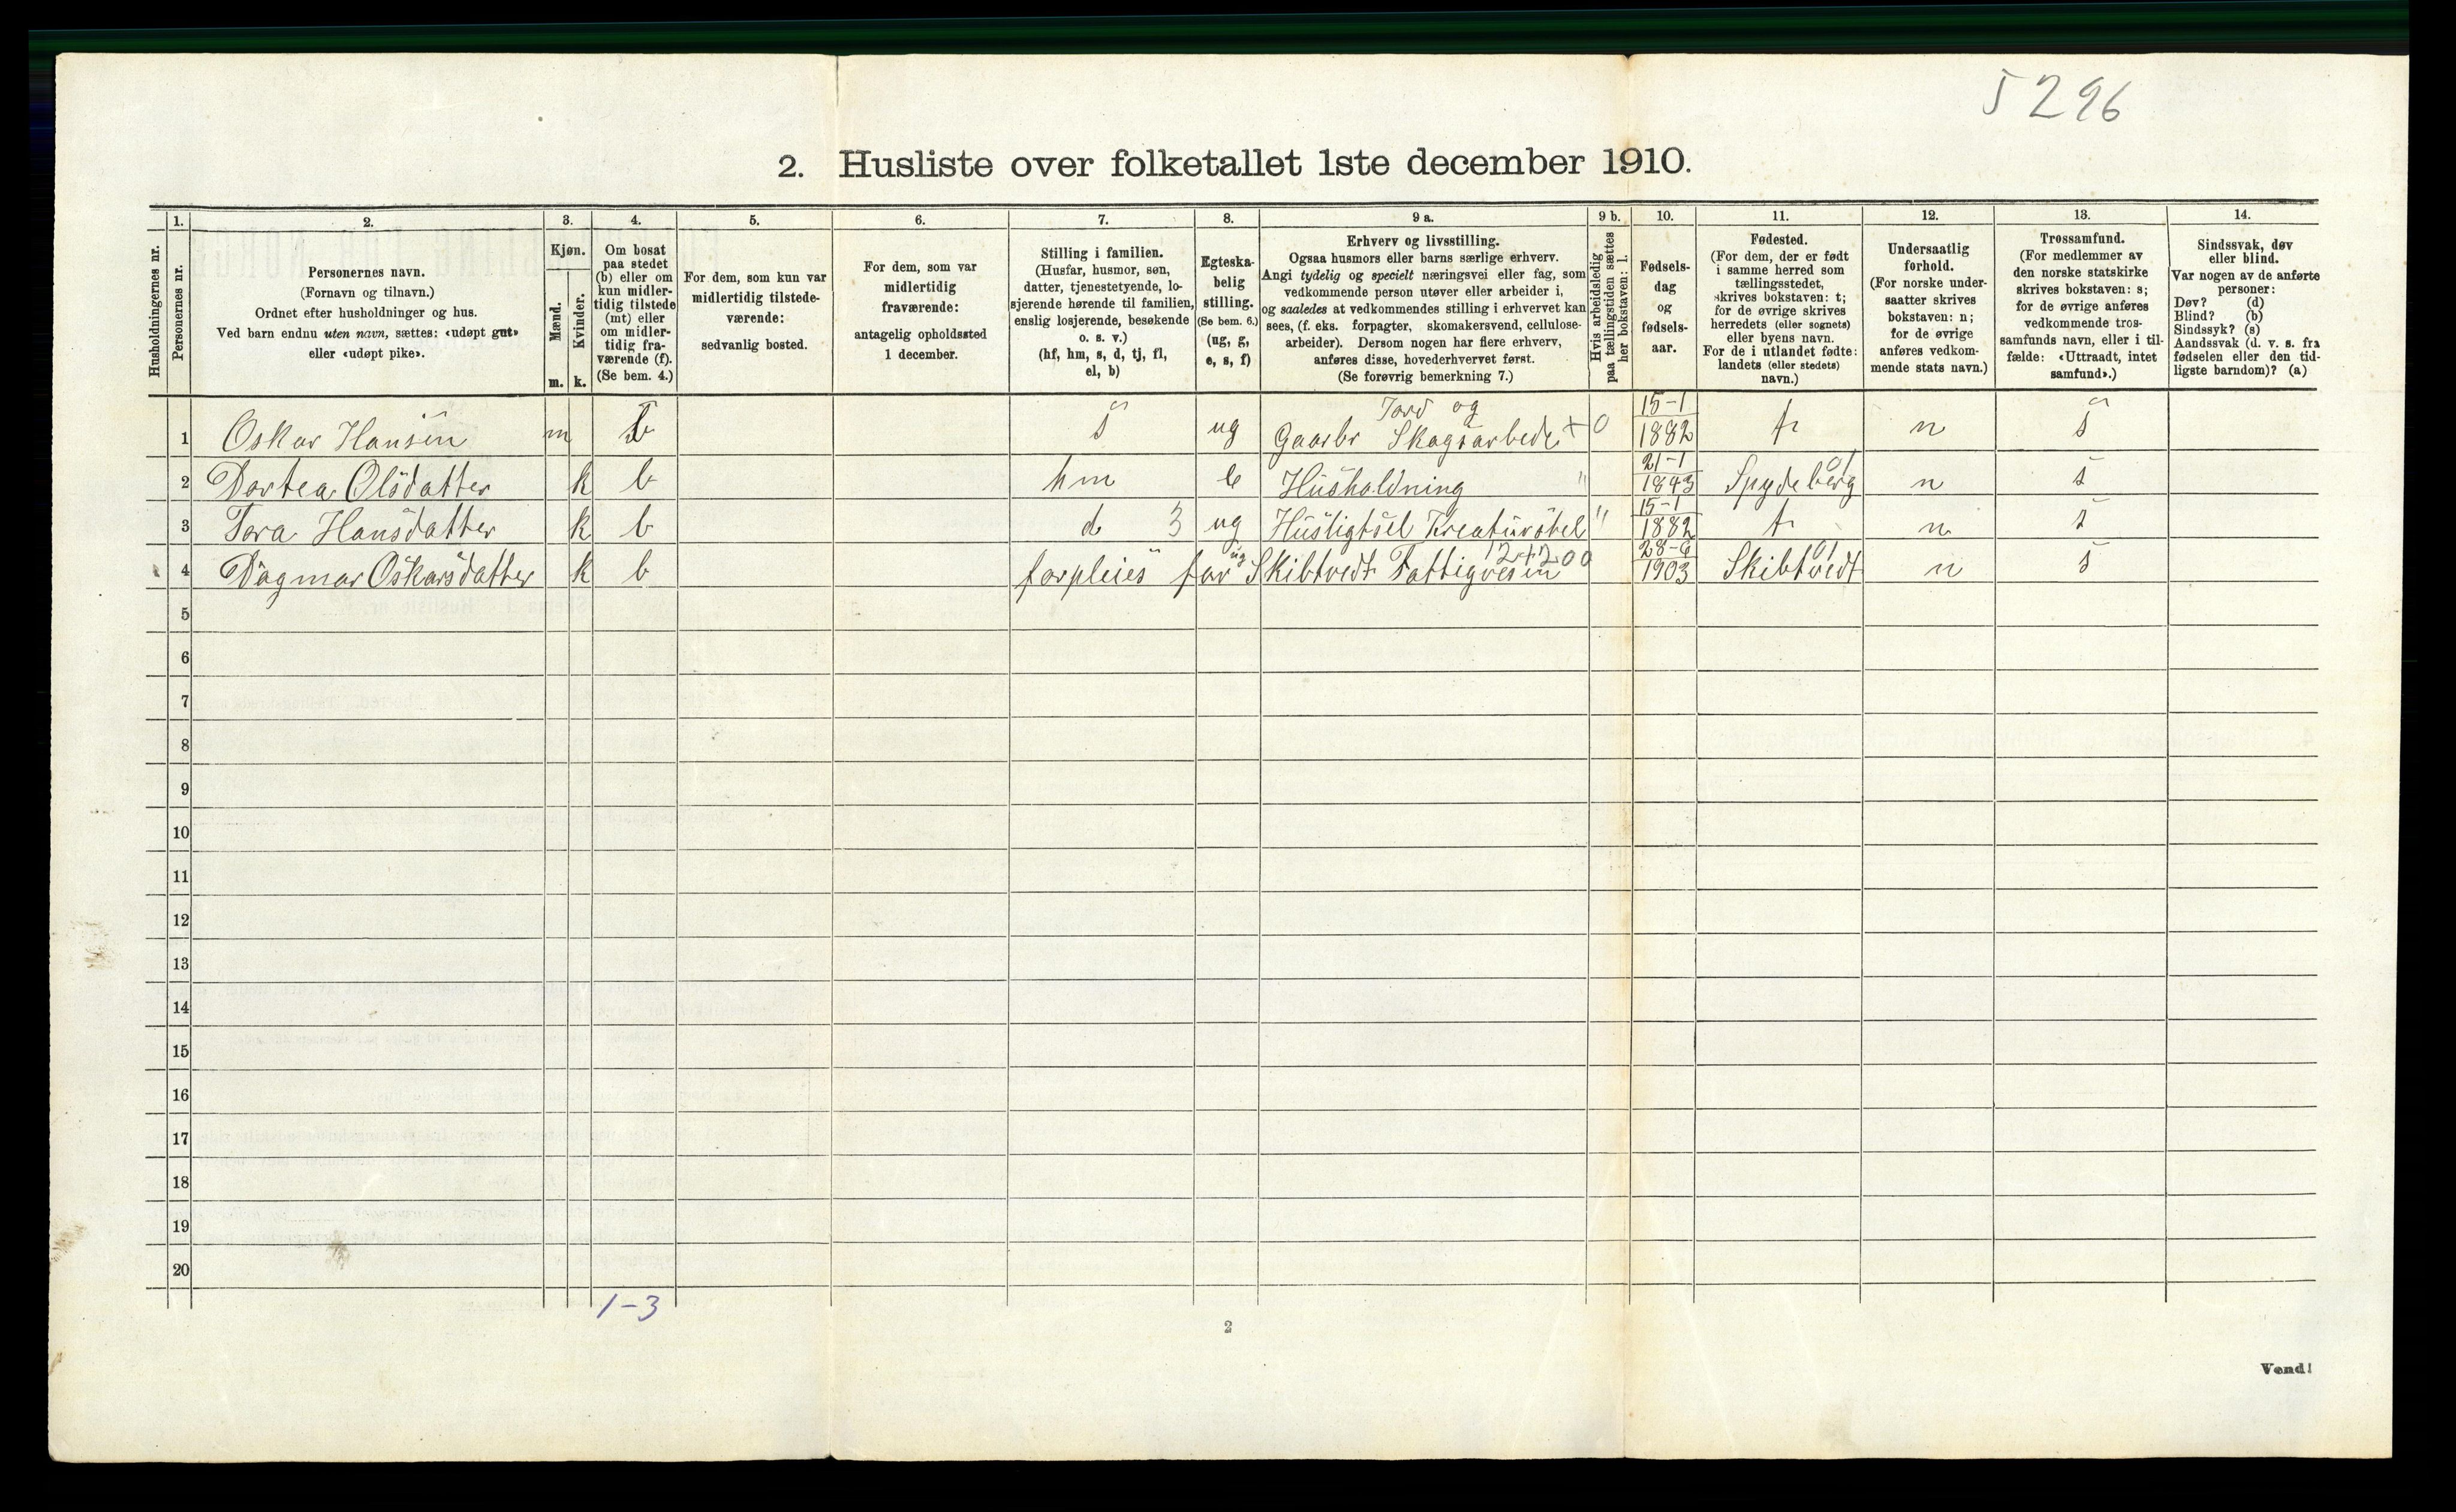 5296
2. Husliste over folketallet 1ste december 1910.
Husholdningernes nr.
1. Personernes nr.
2. Personernes navn. (Fornavn og tilnavn.) Ordnet efter husholdninger og hus. Ved barn endnu uten navn, sættes: «udøpt gut» eller «udøpt pike».
3. Kjøn. Mænd. m. Kvinder. k.
4. Om bosat paa stedet (b) eller om kun midler-tidig tilstede (mt) eller om midler-tidig fra-værende (f). (Se bem. 4.)
5. For dem, som kun var midlertidig tilstede-værende: sedvanlig bosted.
6. For dem, som var midlertidig fraværende: antagelig opholdssted 1 december.
7. Stilling i familien. (Husfar, husmor, søn, datter, tjenestetyende, lo-sjerende hørende til familien, enslig losjerende, besøkende o. s. v.) (hf, hm, s, d, tj, fl, el, b)
8. Egteska-belig stilling. (Se bem. 6.) (ug, g, e, s, f)
9 a. Erhverv og livsstilling. Ogsaa husmors eller barns særlige erhverv. Angi tydelig og specielt næringsvei eller fag, som vedkommende person utøver eller arbeider i, og saaledes at vedkommendes stilling i erhvervet kan sees, (f. eks. forpagter, skomakersvend, cellulose-arbeider). Dersom nogen har flere erhverv, anføres disse, hovederhvervet først. (Se forøvrig bemerkning 7.)
9 b. Hvis arbeidsledig paa tællingstiden sættes her bokstaven: l.
10. Fødsels-dag og fødsels-aar.
11. Fødested. (For dem, der er født i samme herred som tællingsstedet, skrives bokstaven: t; for de øvrige skrives herredets (eller sognets) eller byens navn. For de i utlandet fødte: landets (eller stedets) navn.)
12. Undersaatlig forhold. (For norske under-saatter skrives bokstaven: n; for de øvrige anføres vedkom-mende stats navn.)
13. Trossamfund. (For medlemmer av den norske statskirke skrives bokstaven: s; for de øvrige anføres vedkommende tros-samfunds navn, eller i til-fælde: «Uttraadt, intet samfund».)
14. Sindssvak, døv eller blind. Var nogen av de anførte personer: Døv? (d) Blind? (b) Sindssyk? (s) Aandssvak (d. v. s. fra fødselen eller den tid-ligste barndom)? (a)
1 Oskar Hansen m b s ug Gaarbr Jord og Skogsarbede + 0 15-1 1882 t n s
2 Dortea Olsdatter k b hm e Husholdning " 21-1 1843 Spydeberg 01 n s
3 Tora Hansdatter k b d 3 ug Husligtsel Kreaturstel " 15-1 1882 t n s
4 Dagmar Oskarsdatter k b forpleies for ug Skibtvedt Fattigvesen 12+200 28-6 1903 Skibtvedt 01 n s
5
6
7
8
9
10
11
12
13
14
15
16
17
18
19
20
1-3
2
Vend!